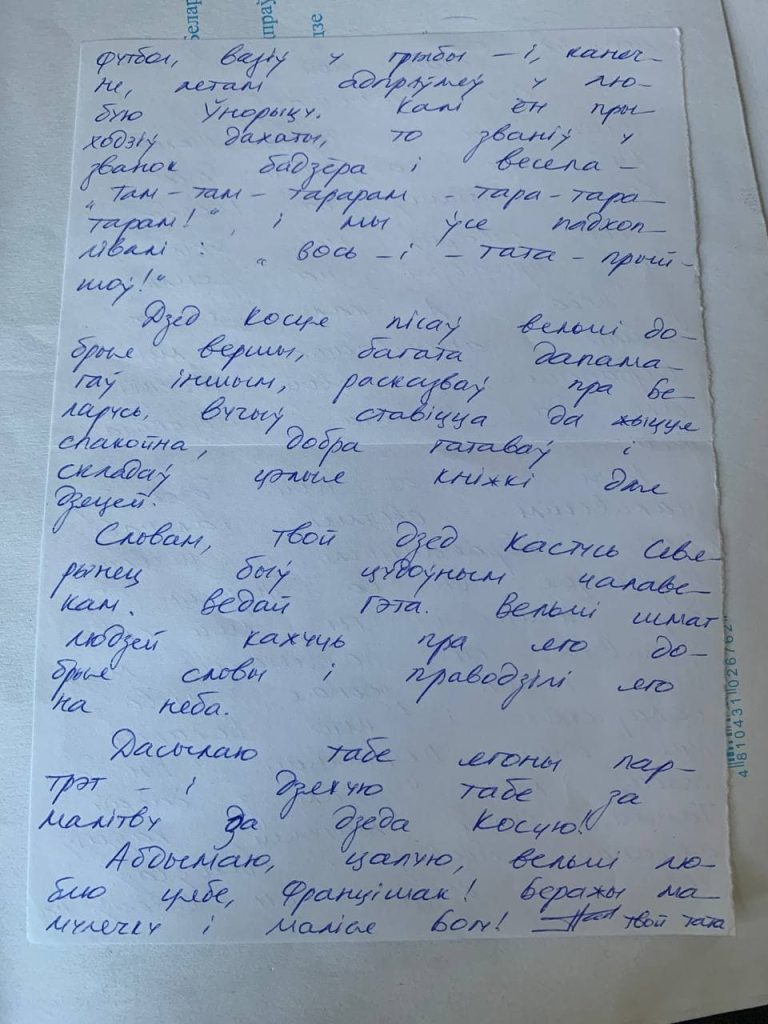 Белар
праў
дзе
футбол, вазіў у грыбы – і, канеч-
не, летам адпраўляў у лю-
бую Ўнорыцу. Калі ён пры-
ходзіў дахаты, то званіў у
званок бадзёра і весела –
"Там – там – тарарам – тара – тара –
тарам!", і мы ўсе падхоп-
лівалі: "вось – і – тата – прый-
шоў!"
Дзед Косця пісаў вельмі до-
брыя вершы, багата дапама-
гаў іншым, расказваў пра Бе-
ларусь, вучыў ставіцца да жыцця
спакойна, добра гатаваў і
складаў цэлыя кніжкі для
дзецей.
Словам, твой дзед Кастусь Севя-
рынец быў цудоўным чалаве-
кам. Ведай гэта. Вельмі шмат
людзей кажуць пра яго до-
брыя словы і праводзілі яго
на неба.
Дасылаю табе ягоны пар-
трэт – і дзякую табе за
малітву за дзеда Косцю!
Абдымаю, цалую, вельмі лю-
блю цябе, Францішак! Беражы ма-
мулечку і маліся Богу! твой тата
4 810431 026762